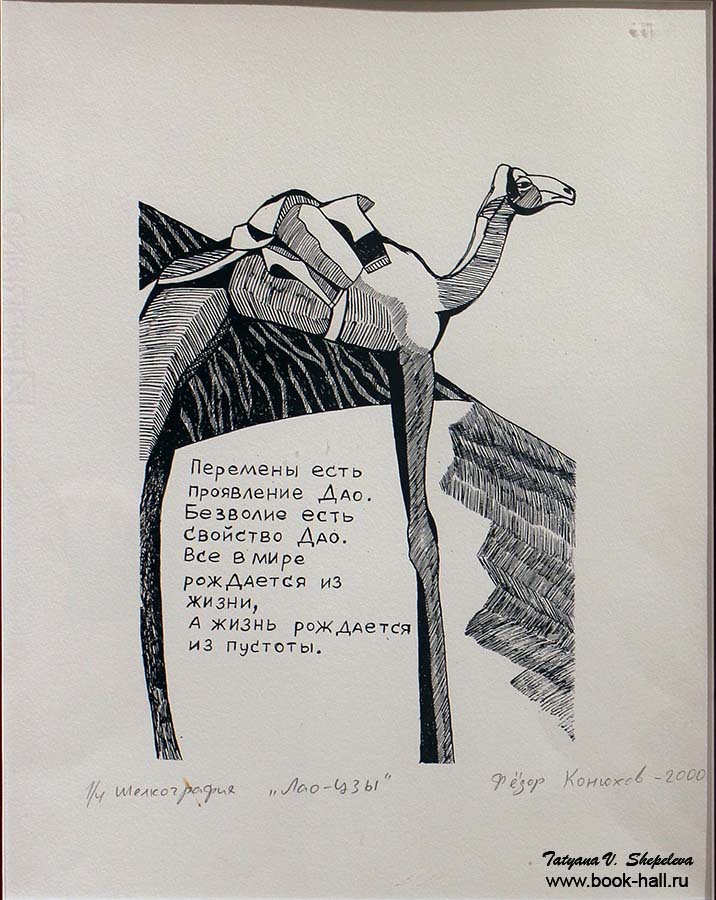 Перемены есть
проявление Дао.
Безволие есть
свойство Дао.
Все в мире
рождается из
жизни,
А жизнь рождается
из пустоты.
1/4 шелкография „Лао-цзы" Фёдор Конюхов -2000
Tatyana V. Shepeleva
www.book-hall.ru